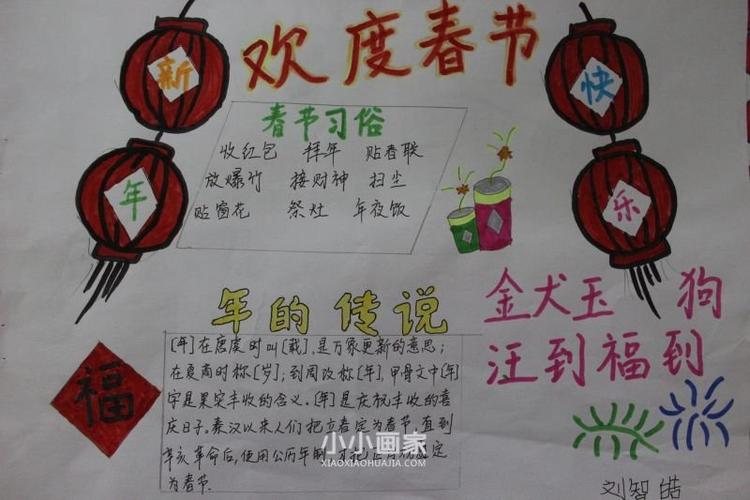 欢度春节
新年
快乐
春节习俗
收红包 拜年 贴春联
放爆竹 接财神 扫尘
贴窗花 祭灶 年夜饭
年的传说
[年]在唐虞时叫[载],是万象更新的意思;
在夏商时称[岁];到周改称[年],甲骨文中[年]
字是果实丰收的含义.[年]是庆祝丰收的喜
庆日子.秦汉以来人们把立春定为春节,直到
辛亥革命后,使用公历年制,才把正月初 定
为春节.
福
金犬玉 狗
汪到福到
刘智皓
小小画家
XIAOXIAOHUAJIA.COM